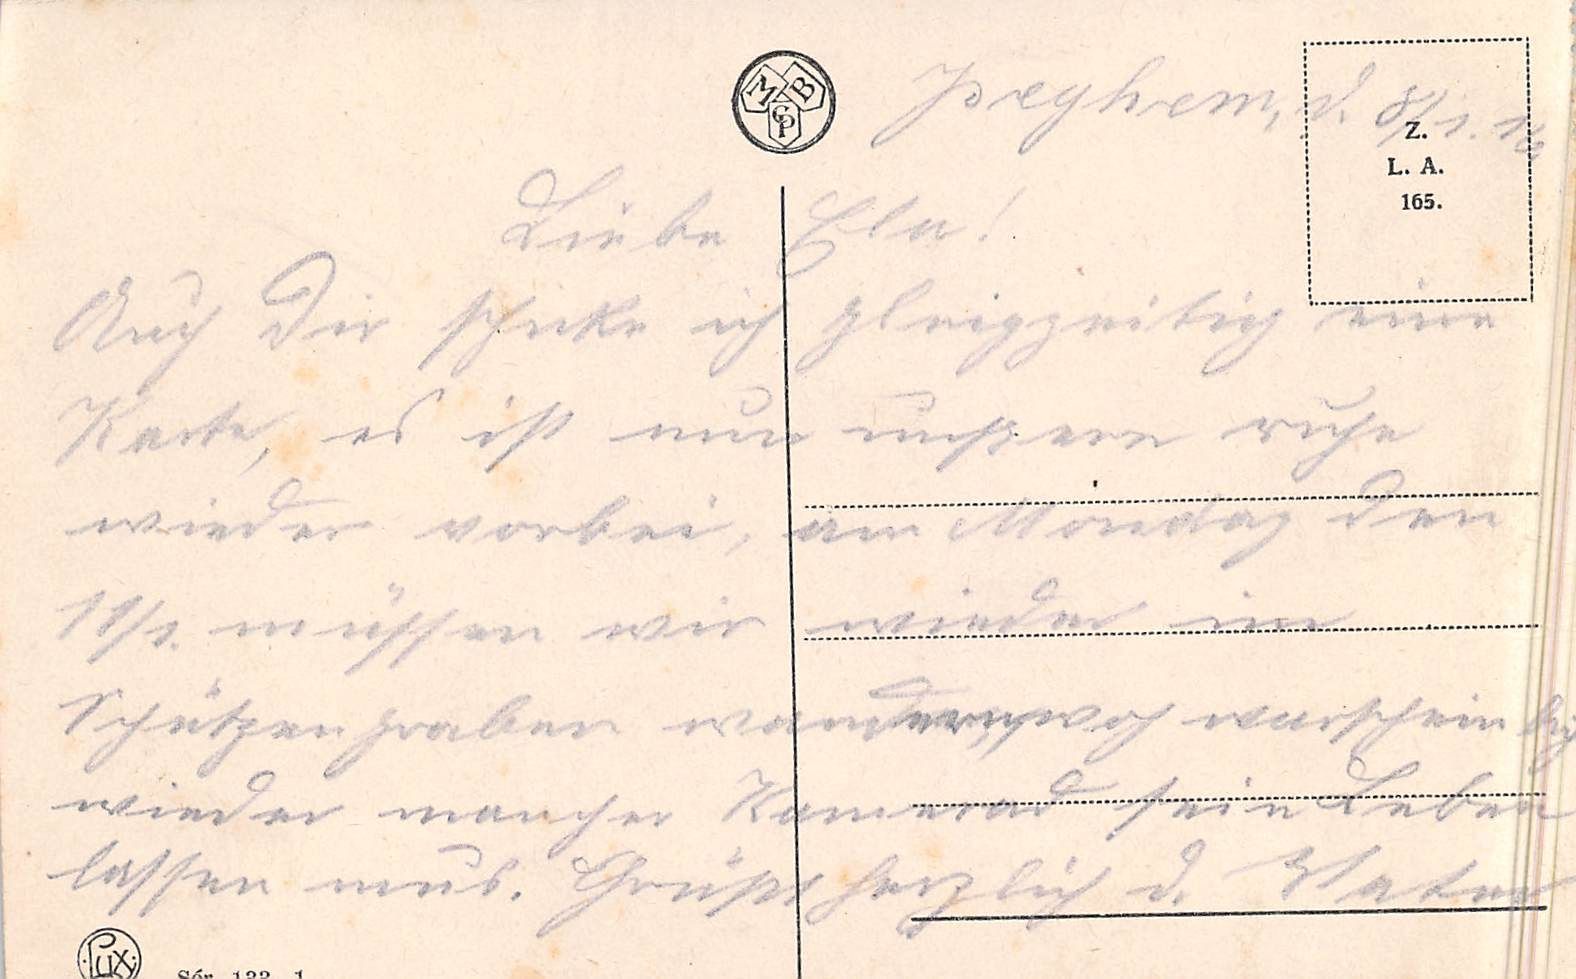 M B
G P
Iseghem, d. 8/1. 16
Z.
L. A.
165.
Liebe Ela!
Auch Dir schicke ich gleichzeitig eine
Karte, es ist nun unsere ruhe
wieder vorbei, am Mondag den
11/1. müssen wir wieder im
Schützengraben wandern, wo warscheinlich
wieder mancher Kamerad sein Leben
lassen mus. Grüßt herzlich d. Vater
Lux
Sér. 133 1